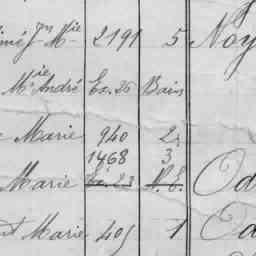 Mie 2191 5 Noy
Mie André Ex. 26 Bains
Marie 940 2
1468 3
Marie Ex. 23 V. E. Od
Marie 405 1 Od